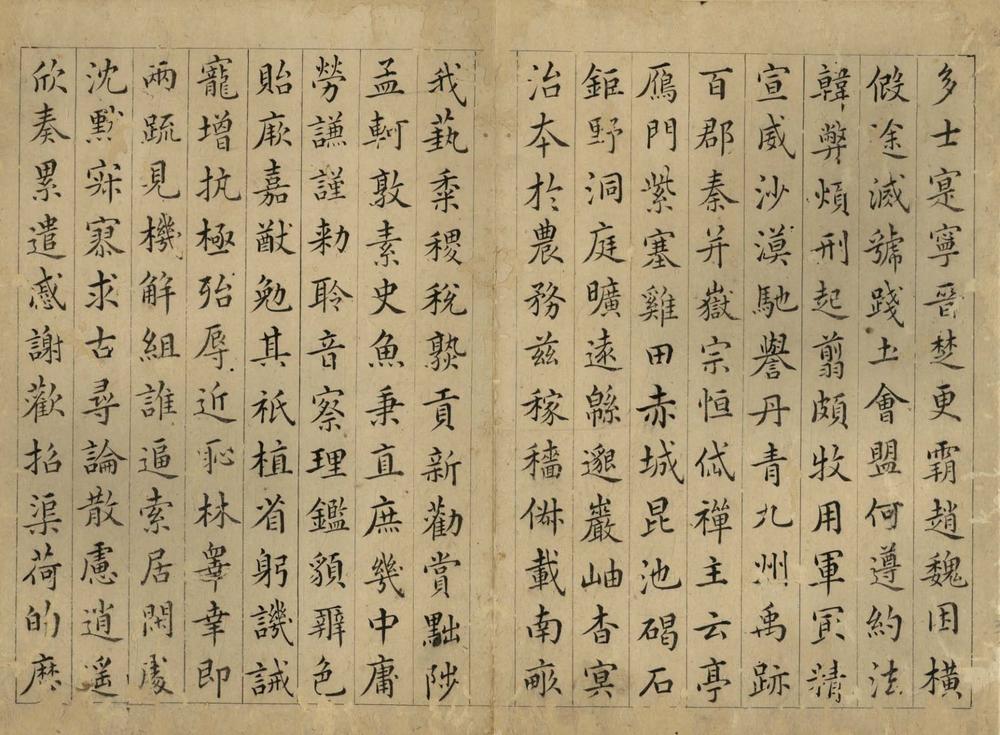 多士寔寧晉楚更霸趙魏困橫
假途滅虢踐土會盟何遵約法
韓弊煩刑起翦頗牧用軍冣精
宣威沙漠馳譽丹青九州禹跡
百郡秦并嶽宗恒岱禪主云亭
鴈門紫塞雞田赤城昆池碣石
鉅野洞庭曠遠緜邈巖岫杳冥
治本於農務茲稼穡俶載南畝
我藝黍稷稅熟貢新勸賞黜陟
孟軻敦素史魚秉直庶幾中庸
勞謙謹勑聆音察理鑑貌辨色
貽厥嘉猷勉其祗植省躬譏誡
寵增抗極殆辱近恥林睾幸即
兩疏見機解組誰逼索居閑處
沈默寂寥求古尋論散慮逍遥
欣奏累遣慼謝歡招渠荷的歷